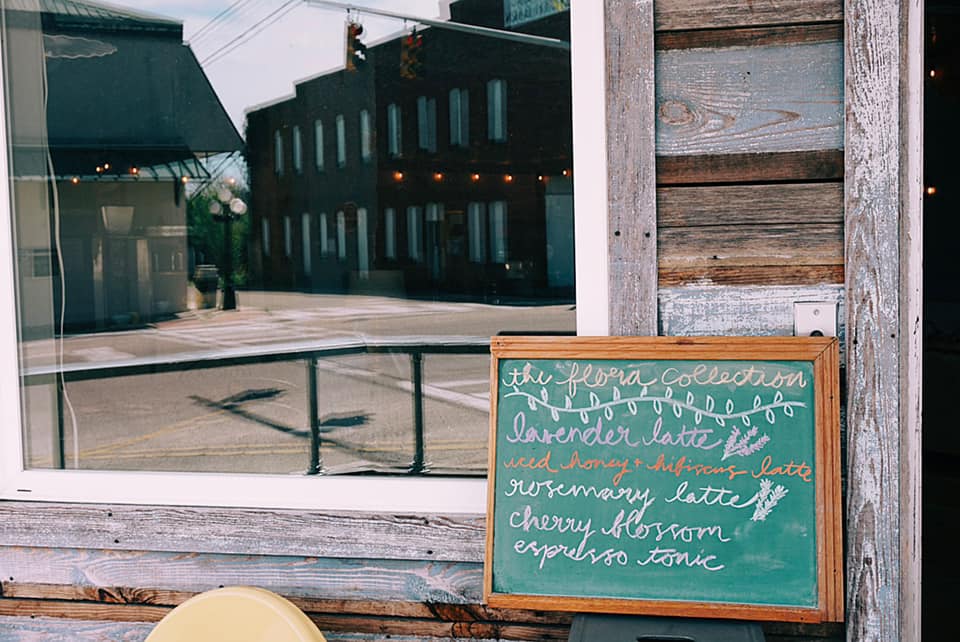 the flora collection
lavender latte
iced honey + hibiscus latte
rosemary latte
cherry blossom
espresso tonic